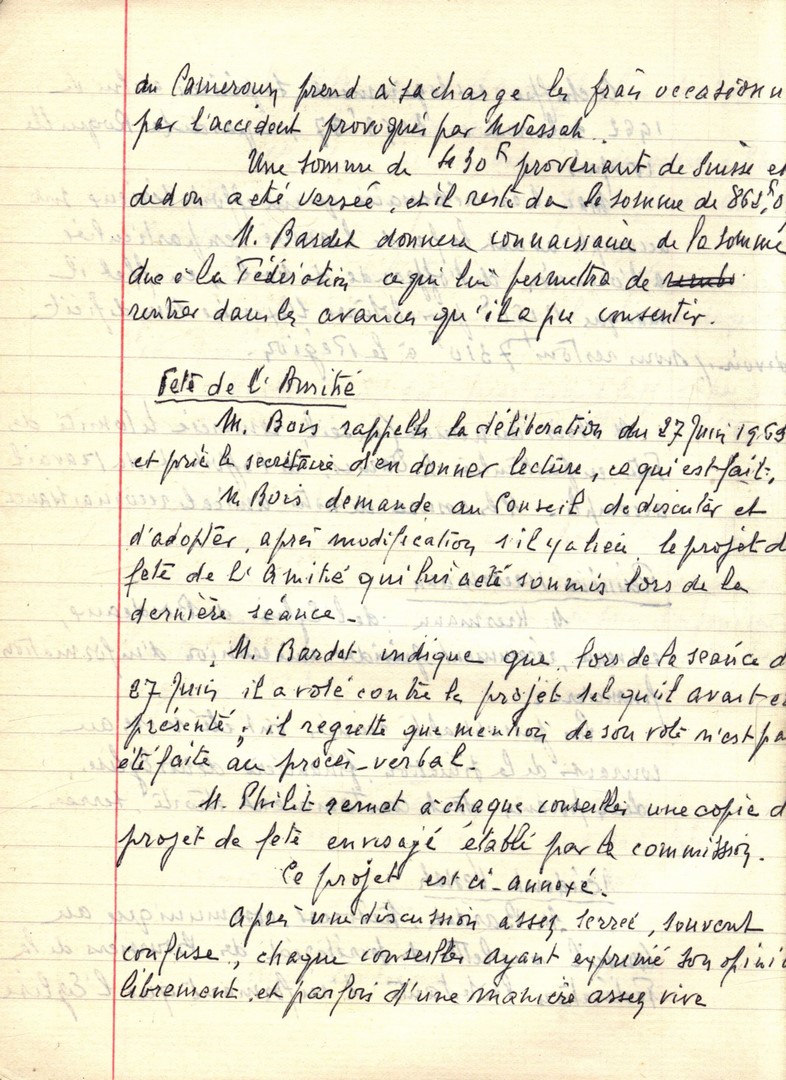 du Cameroun prend à sa charge les frais occasionn
par l'accident provoqués par M Vassah.
Une somme de 430F provenant de Suisse et
de don a été versée, et il reste du la somme de 865F,0
M. Bardet donnera connaissance de la somme
due à la Fédération ce qui lui permettra de
rentrer dans les avances qu'il a pu consentir.
Fete de l'Amitié
M. Bois rappelle la déliberation du 27 Juin 1963
et prie le secrétaire d'en donner lecture, ce qui est fait.
M Bois demande au Conseil de discuter et
d'adopter, après modification s'il y a lieu le projet d
fete de l'Amitié qui lui a été soumis lors de la
dernière séance -
M. Bardet indique que, lors de la séance d
27 Juin il a voté contre le projet tel qu'il avait e
présenté; il regrette que mention de son vote n'est pa
été faite au procès-verbal -
M. Philit remet à chaque conseiller une copie d
projet de fete envisagé établi par la commission.
Ce projet est ci-annexé.
Après une discussion assez serrée, souvent
confuse, chaque conseiller ayant exprimé son opini
librement et parfois d'une manière assez vive